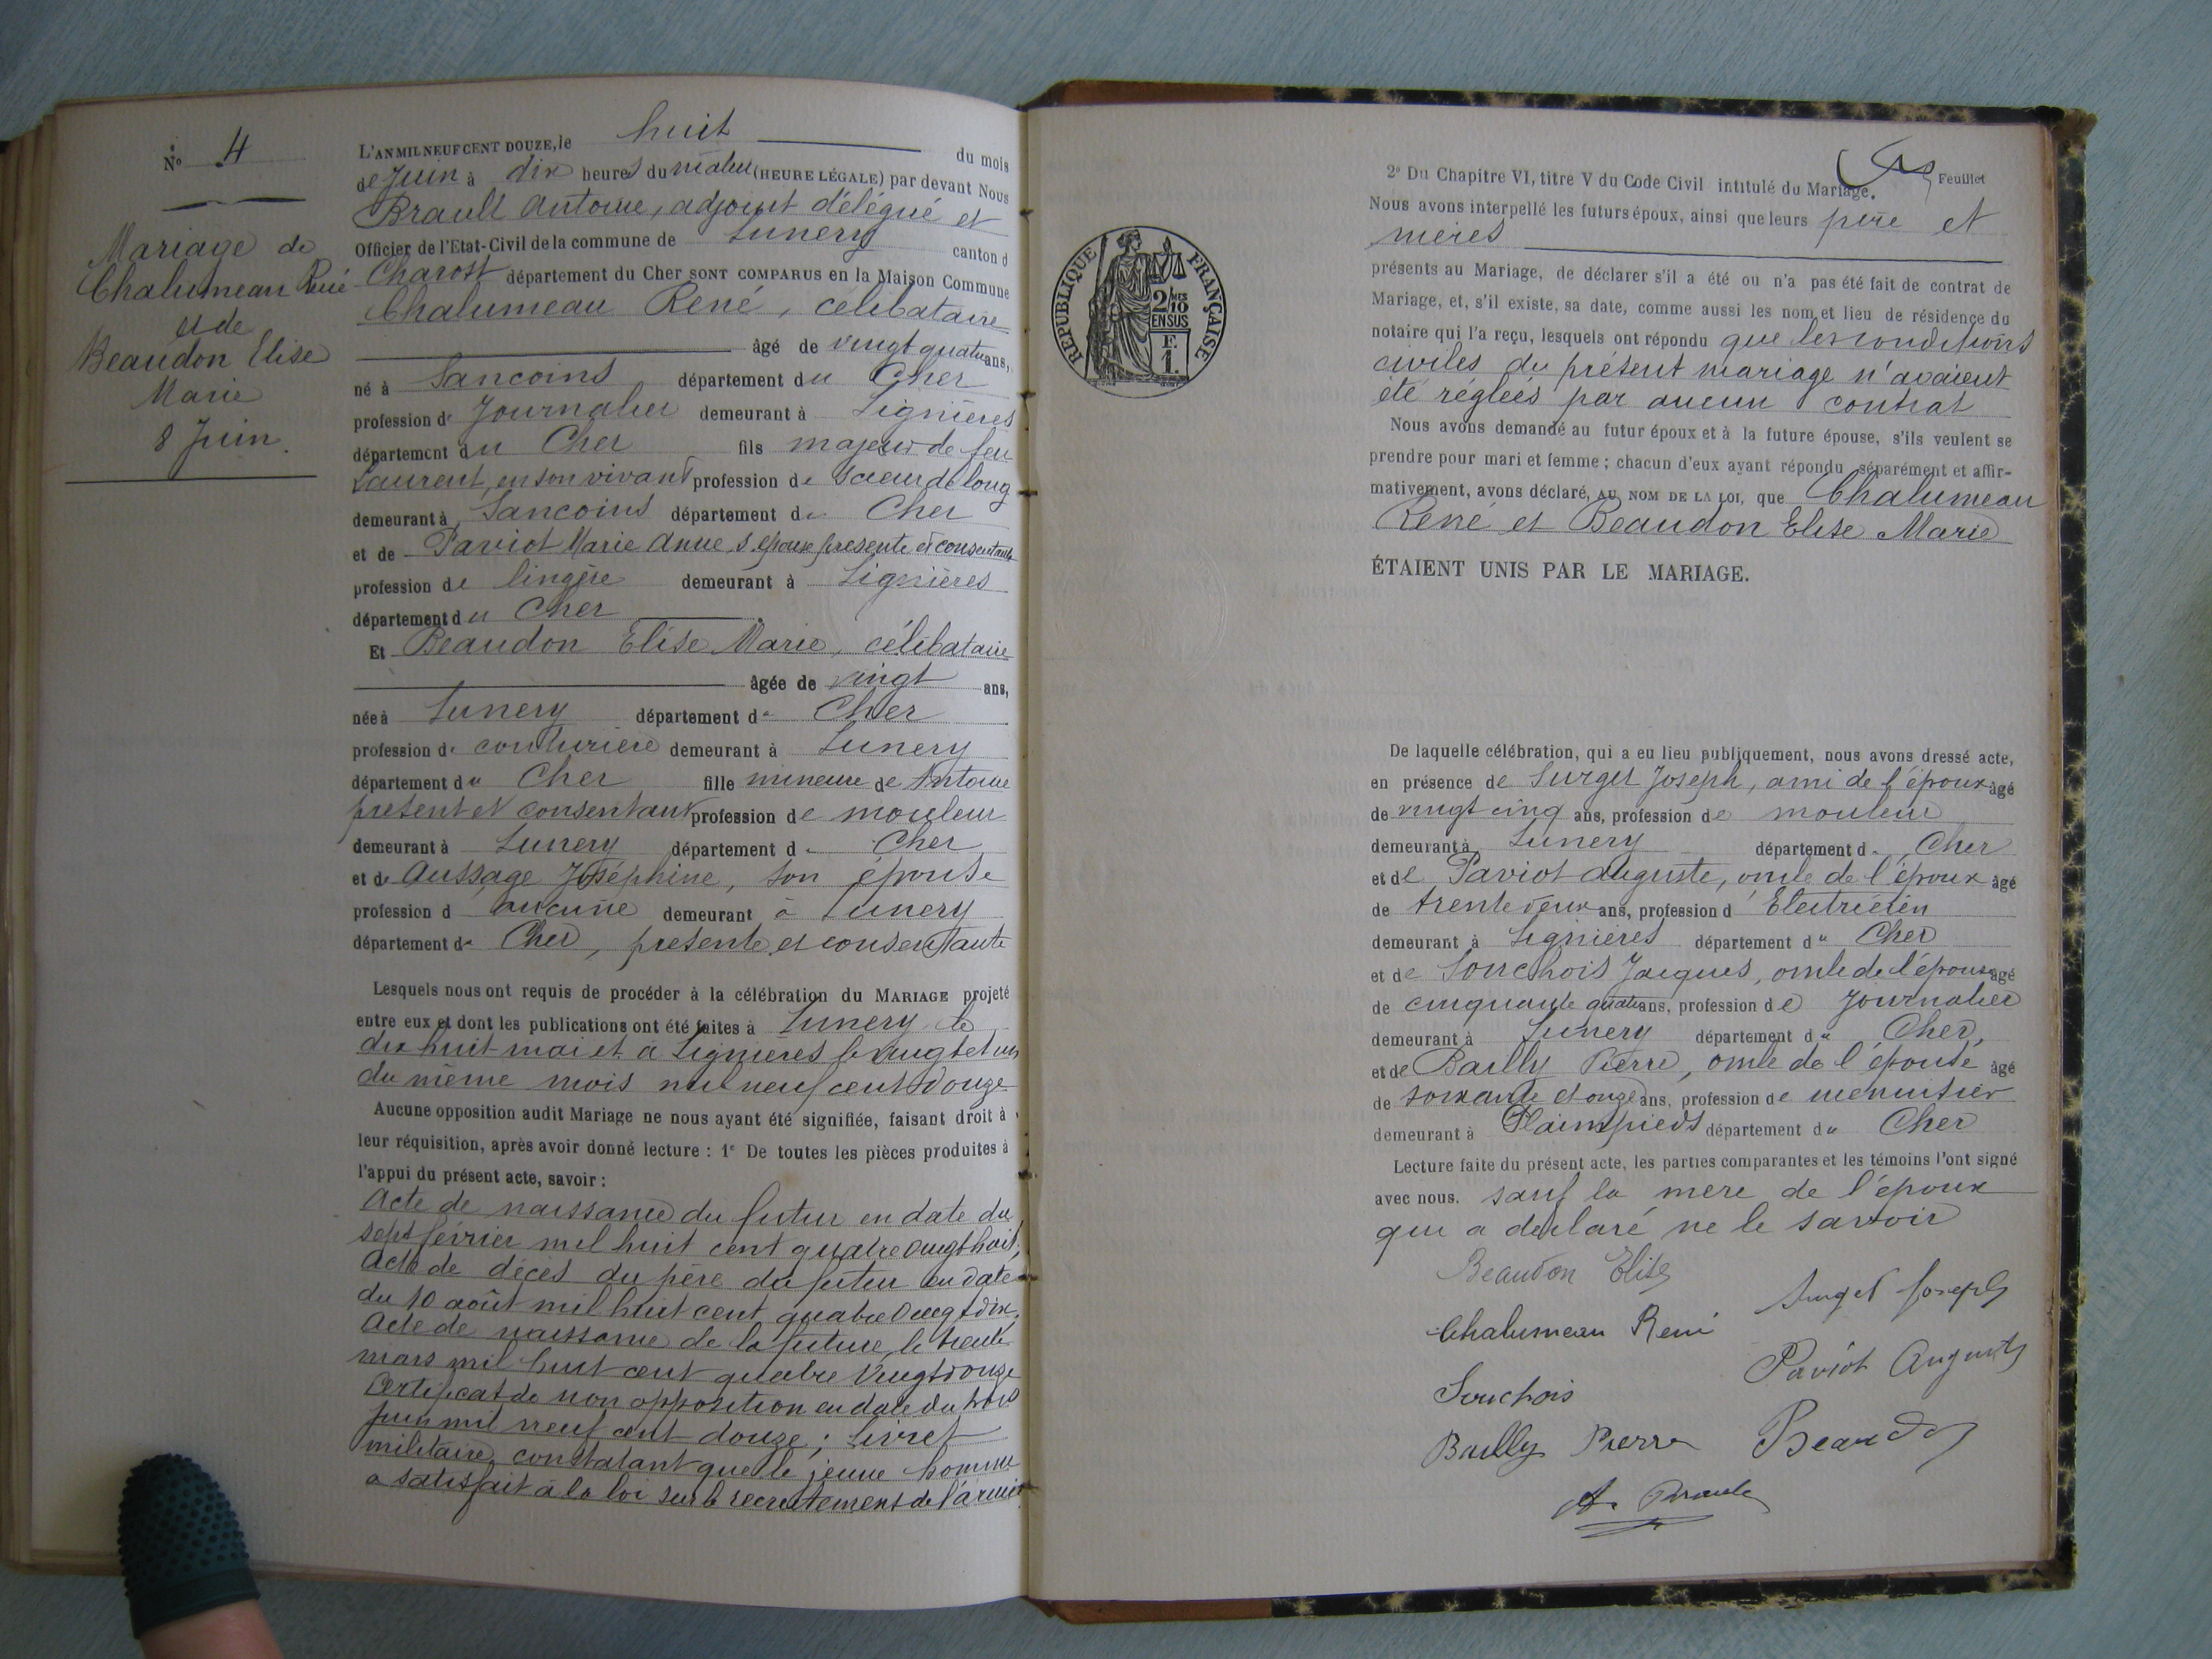 N° 4
Mariage de
Chalumeau René
et de
Beaudon Elise
Marie
8 Juin.
L'AN MIL NEUF CENT DOUZE, le huit du mois
de Juin à dix heures du matin (HEURE LÉGALE) par devant Nous
Brault Antoine, adjoint délégué et
Officier de l'Etat-Civil de la commune de Lunery canton d
Charost département du Cher SONT COMPARUS en la Maison Commune
Chalumeau René, célibataire
âgé de vingt quatre ans,
né à Sancoins département du Cher
profession de Journalier demeurant à Lignières
département du Cher fils majeur de feu
Laurent, en son vivant profession de scieur de long
demeurant à Sancoins département du Cher
et de Paviot Marie Anne s. épouse présente et consentante
profession de lingère demeurant à Lignières
département du Cher
Et Beaudon Elise Marie, célibataire
âgée de vingt ans,
née à Lunery département du Cher
profession de couturière demeurant à Lunery
département du Cher fille mineure de Antoine
présent et consentant profession de mouleur
demeurant à Lunery département du Cher
et de Aussage Joséphine, son épouse
profession d aucune demeurant à Lunery
département du Cher, présente et consentante
Lesquels nous ont requis de procéder à la célébration du MARIAGE projeté
entre eux et dont les publications ont été faites à Lunery le
dix huit mai et à Lignières le vingt et un
du même mois mil neuf cent douze
Aucune opposition audit Mariage ne nous ayant été signifiée, faisant droit à
leur réquisition, après avoir donné lecture : 1° De toutes les pièces produites à
l'appui du présent acte, savoir :
Acte de naissance du futur en date du
sept février mil huit cent quatre vingt huit;
Acte de décès du père du futur en date
du 10 août mil huit cent quatre vingt dix.
Acte de naissance de la future le trente
mars mil huit cent quatre vingt douze
Certificat de non opposition en date du trois
juin mil neuf cent douze ; Livret
militaire constatant que le jeune homme
a satisfait à la loi sur le recrutement de l'armée
RÉPUBLIQUE FRANÇAISE
2/10 MES
EN SUS
F.
1.
Feuillet
2° Du Chapitre VI, titre V du Code Civil intitulé du Mariage.
Nous avons interpellé les futurs époux, ainsi que leurs père et
mères
présents au Mariage, de déclarer s'il a été ou n'a pas été fait de contrat de
Mariage, et, s'il existe, sa date, comme aussi les nom et lieu de résidence du
notaire qui l'a reçu, lesquels ont répondu que les conditions
civiles du présent mariage n'avaient
été réglées par aucun contrat
Nous avons demandé au futur époux et à la future épouse, s'ils veulent se
prendre pour mari et femme ; chacun d'eux ayant répondu séparément et affir-
mativement, avons déclaré, AU NOM DE LA LOI, que Chalumeau
René et Beaudon Elise Marie
ÉTAIENT UNIS PAR LE MARIAGE.
De laquelle célébration, qui a eu lieu publiquement, nous avons dressé acte,
en présence de Surget Joseph, ami de l'époux âgé
de vingt cinq ans, profession de mouleur
demeurant à Lunery département du Cher
et de Paviot Auguste, oncle de l'époux âgé
de trente deux ans, profession d' Electricien
demeurant à Lignières département du Cher
et de Souchois Jacques, oncle de l'épouse âgé
de cinquante quatre ans, profession de Journalier
demeurant à Lunery département du Cher,
et de Bailly Pierre, oncle de l'épouse âgé
de soixante et onze ans, profession de menuisier
demeurant à Plaimpieds département du Cher
Lecture faite du présent acte, les parties comparantes et les témoins l'ont signé
avec nous. sauf la mère de l'époux
qui a déclaré ne le savoir
Beaudon Elise
Surget Joseph
Chalumeau René
Paviot Auguste
Souchois
Bailly Pierre
Beaudon
A. Brault